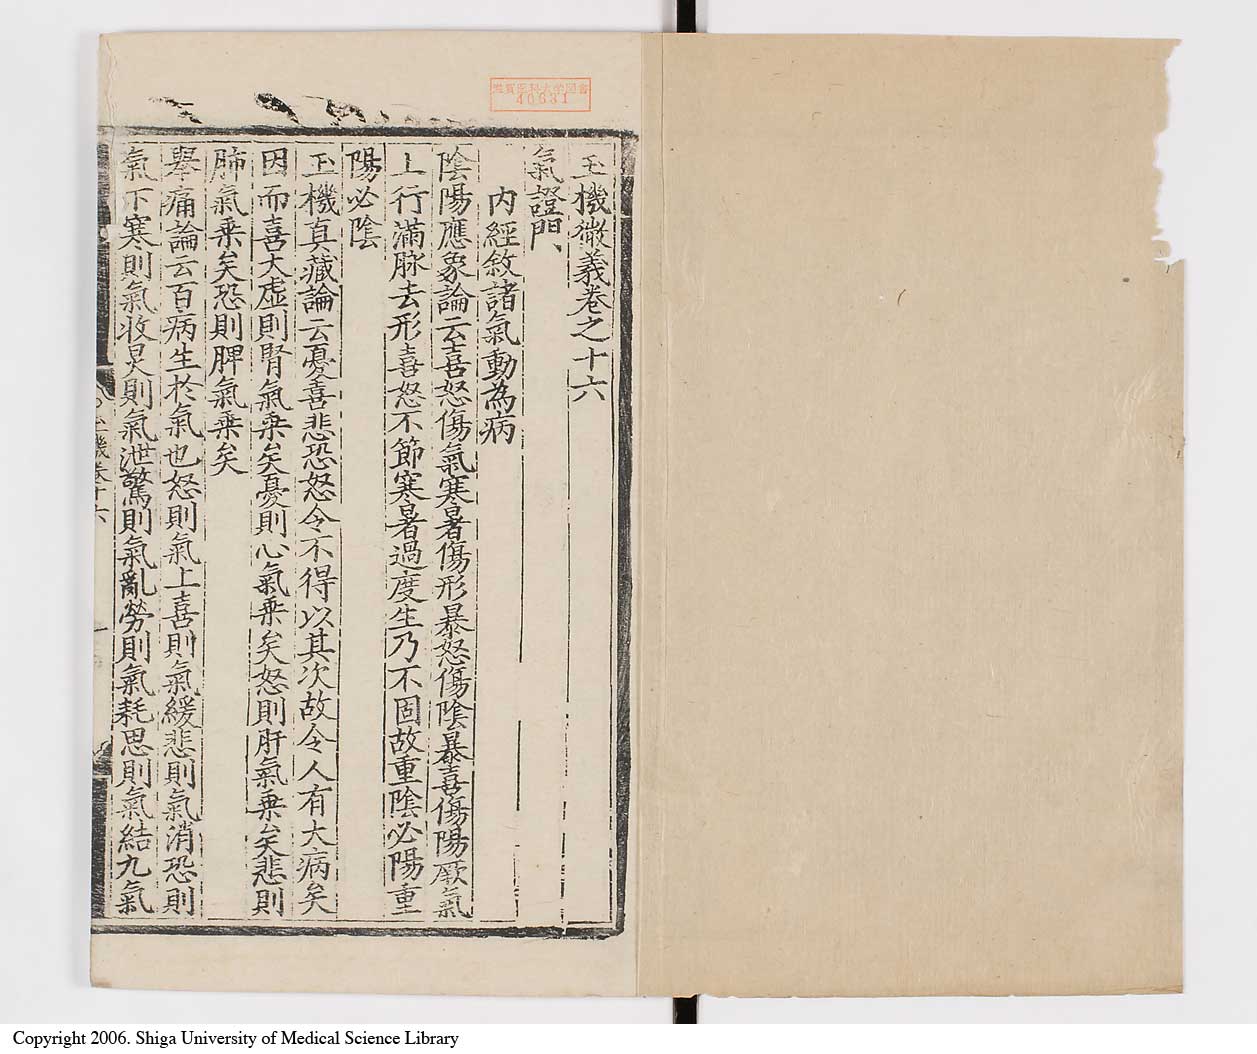 玉機微義卷之十六
氣證門
内經敘諸氣動為病
陰陽應象論云喜怒傷氣寒暑傷形暴怒傷陰暴喜傷陽厥氣
上行滿脉去形喜怒不節寒暑過度生乃不固故重陰必陽重
陽必陰
玉機真藏論云憂喜悲恐怒令不得以其次故令人有大病矣
因而喜大虚則腎氣乗矣憂則心氣乗矣怒則肝氣乗矣悲則
肺氣乗矣恐則脾氣乗矣
舉痛論云百病生於氣也怒則氣上喜則氣緩悲則氣消恐則
氣下寒則氣收炅則氣泄驚則氣亂勞則氣耗思則氣結九氣
玉機卷十六
一
滋賀医科大学図書
40631
Copyright 2006. Shiga University of Medical Science Library